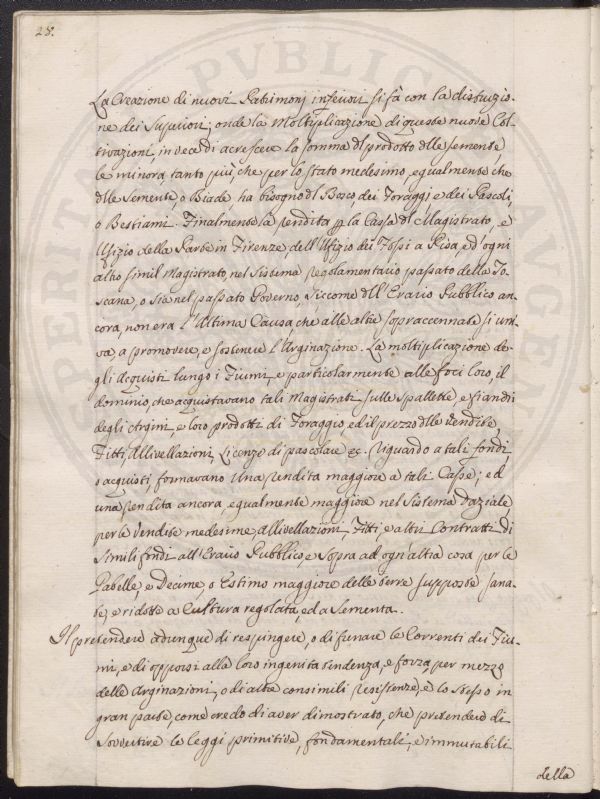 28.
La Creazione di nuovi Patrimonj inferiori si fà con la distruzio-
ne dei Superiori; onde la Moltiplicazione di queste nuove Col-
tivazioni, in vece di acrescere la somma dl prodotto dlle semente,
le minora, tanto più, che per lo stato medesimo, egualmente che
dlle Semente, o Biade ha bisogno dl Bosco dei Foraggi, e dei Pascoli,
o Bestiami. Finalmente la rendita per la Cassa dl Magistrato, e
Ufizio della Parte in Firenze, dell'Ufizio dei Fossi a Pisa, e d'ogni
altro simil Magistrato, nel Sistema regolamentario passato della To-
scana, o sia nel passato Governo, siccome dll'Erario Pubblico an-
cora, non era l'Ultima Causa, che alle altre sopraccennate si uni-
va, a promovere, e sostenere l'Arginazione. La moltiplicazione de-
gli Acquisti lungo i Fiumi, e particolarmente alle foci loro, il
dominio, che acquistavano tali Magistrati sulle Spallette, e fiandri
degli Argini, e loro prodotti di Foraggio, ed il prezzo dlle Vendite,
Fitti, Allivellazioni, Licenze di pascolare &c. riguardo a tali fondi,
o acquisti, formavano Una rendita maggiore a tali Casse; ed
una rendita ancora egualmente maggiore nel Sistema Daziale,
per le Vendite medesime, Allivellazioni, Fitti, e altri Contratti di
Simili fondi all'Erario Pubblico, e sopra ad ogn'altra cosa per le
Gabelle, e Decime, o Estimo maggiore delle terre supposte sana-
te, e ridotte a Cultura regolata, ed a Sementa.
Il pretendere adunque di respingere, o di frenare le Correnti dei Fiu-
mi, e di opporsi alla loro ingenita tendenza, e forza, per mezzo
delle Arginazioni, o di altre consimili resistenze, è lo stesso in
gran parte, come credo di aver dimostrato, che pretendere di
Sovvertire le leggi primitive, fondamentali, e immutabili
della
PVBLICA